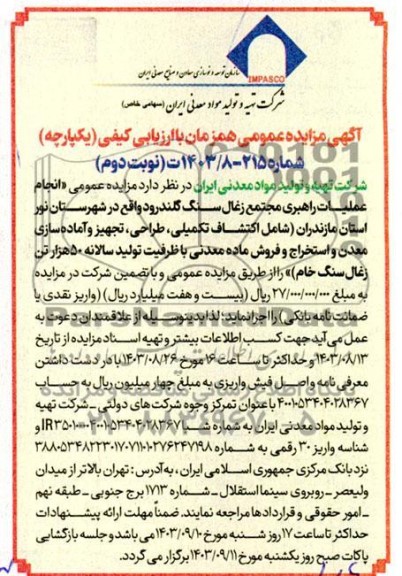 IMPASCO
سازمان توسعه و نوسازی معادن و صنایع معدنی ایران
شرکت تهیه و تولید مواد معدنی ایران (سهامی خاص)
آگهی مزایده عمومی همزمان با ارزیابی کیفی (یکپارچه)
شماره ۲۱۵-۱۴۰۳/۸ت (نوبت دوم)
شرکت تهیه و تولید مواد معدنی ایران در نظر دارد مزایده عمومی «انجام
عملیات راهبری مجتمع زغال سنگ گلندرود واقع در شهرستان نور
استان مازندران (شامل اکتشاف تکمیلی، طراحی، تجهیز و آماده‌سازی
معدن و استخراج و فروش ماده معدنی با ظرفیت تولید سالانه ۵۰هزار تن
زغال‌سنگ خام)» را از طریق مزایده عمومی و با تضمین شرکت در مزایده
به مبلغ ۲۷/۰۰۰/۰۰۰/۰۰۰ ریال (بیست و هفت میلیارد ریال) (واریز نقدی یا
ضمانت نامه بانکی) را اجرا نماید؛ لذا بدینوسیله از علاقمندان دعوت به
عمل می‌آید جهت کسب اطلاعات بیشتر و تهیه اسناد مزایده از تاریخ
۱۴۰۳/۰۸/۱۳ و حداکثر تا ساعت ۱۶ مورخ ۱۴۰۳/۰۸/۲۶ با در دست داشتن
معرفی نامه و اصل فیش واریزی به مبلغ چهار میلیون ریال به حساب
۴۰۰۱۰۵۳۴۰۴۰۲۸۳۶۷ با عنوان تمرکز وجوه شرکت‌های دولتی - شرکت تهیه
و تولید مواد معدنی ایران به شماره شبا
شناسه واریز ۳۰ رقمی به شماره
نزد بانک مرکزی جمهوری اسلامی ایران، به آدرس: تهران بالاتر از میدان
ولیعصر - روبروی سینما استقلال - شماره ۱۷۱۳ برج جنوبی - طبقه نهم
- امور حقوقی و قراردادها مراجعه نمایند. ضمناً مهلت ارائه پیشنهادات
حداکثر تا ساعت ۱۷ روز شنبه مورخ ۱۴۰۳/۰۹/۱۰ می باشد و جلسه بازگشایی
پاکات صبح روز یکشنبه مورخ ۱۴۰۳/۰۹/۱۱ برگزار می گردد.